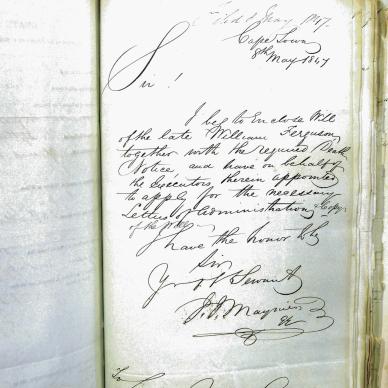 Filed 8 May 1847.
Cape Town
8th May 1847
Sir!
I beg to Enclose Will
of the late William Ferguson
together with the required Death
Notice, and have on behalf of
the Executors therein appointed
to apply for the necessary
Letters of Administration & Copy
of the Will.
I have the honor to be
Sir
Yr Ob Servant
J. J. Maynier
To